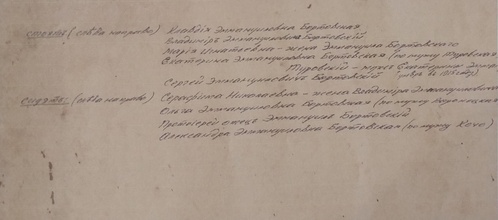 стоятъ (слѣва направо) Клавдія Эммануиловна Бортовская
Владиміръ Эммануиловичъ Бортовскій
Марія Игнатьевна - жена Эммануила Бортовскаго
Екатерина Эммануиловна Бортовская (по мужу Туровская)
Туровскій - мужъ Екатерины
Сергей Эммануиловичъ Бортовскій
Сидятъ: (слѣва направо) Серафима Николаевна - жена Владиміра Эммануиловича
Ольга Эммануиловна Бортовская (по мужу
Протоіерей отецъ Эммануилъ Бортовскій
Александра Эммануиловна Бортовская (по мужу